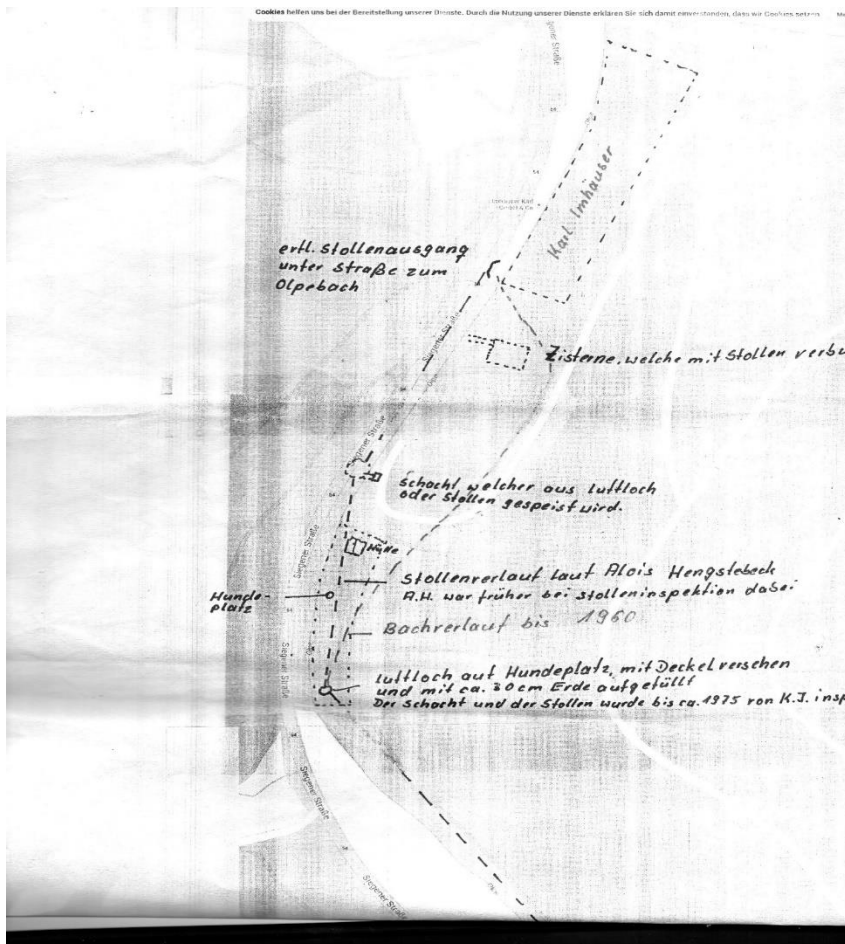 Cookies helfen uns bei der Bereitstellung unserer Dienste. Durch die Nutzung unserer Dienste erklären Sie sich damit einverstanden, dass wir Cookies setzen.
Siegener Straße
Karl Imhäuser
Imhäuser Karl
GmbH & Co.
ertl. Stollenausgang
unter Straße zum
Olpebach
Siegener Straße
Zisterne, welche mit Stollen verbu
Siegener Straße
Schacht welcher aus Luftloch
oder Stollen gespeist wird.
Siegener Straße
Hütte
Stollenverlauf laut Alois Hengstebeck
A.H. war früher bei Stolleninspektion dabei
Hunde-
platz
Bachverlauf bis 1960
Siegener Straße
Luftloch auf Hundeplatz, mit Deckel versehen
und mit ca. 80cm Erde aufgefüllt
Der Schacht und der Stollen wurde bis ca. 1975 von K.J. insp
Siegener Straße
Siegener Straße